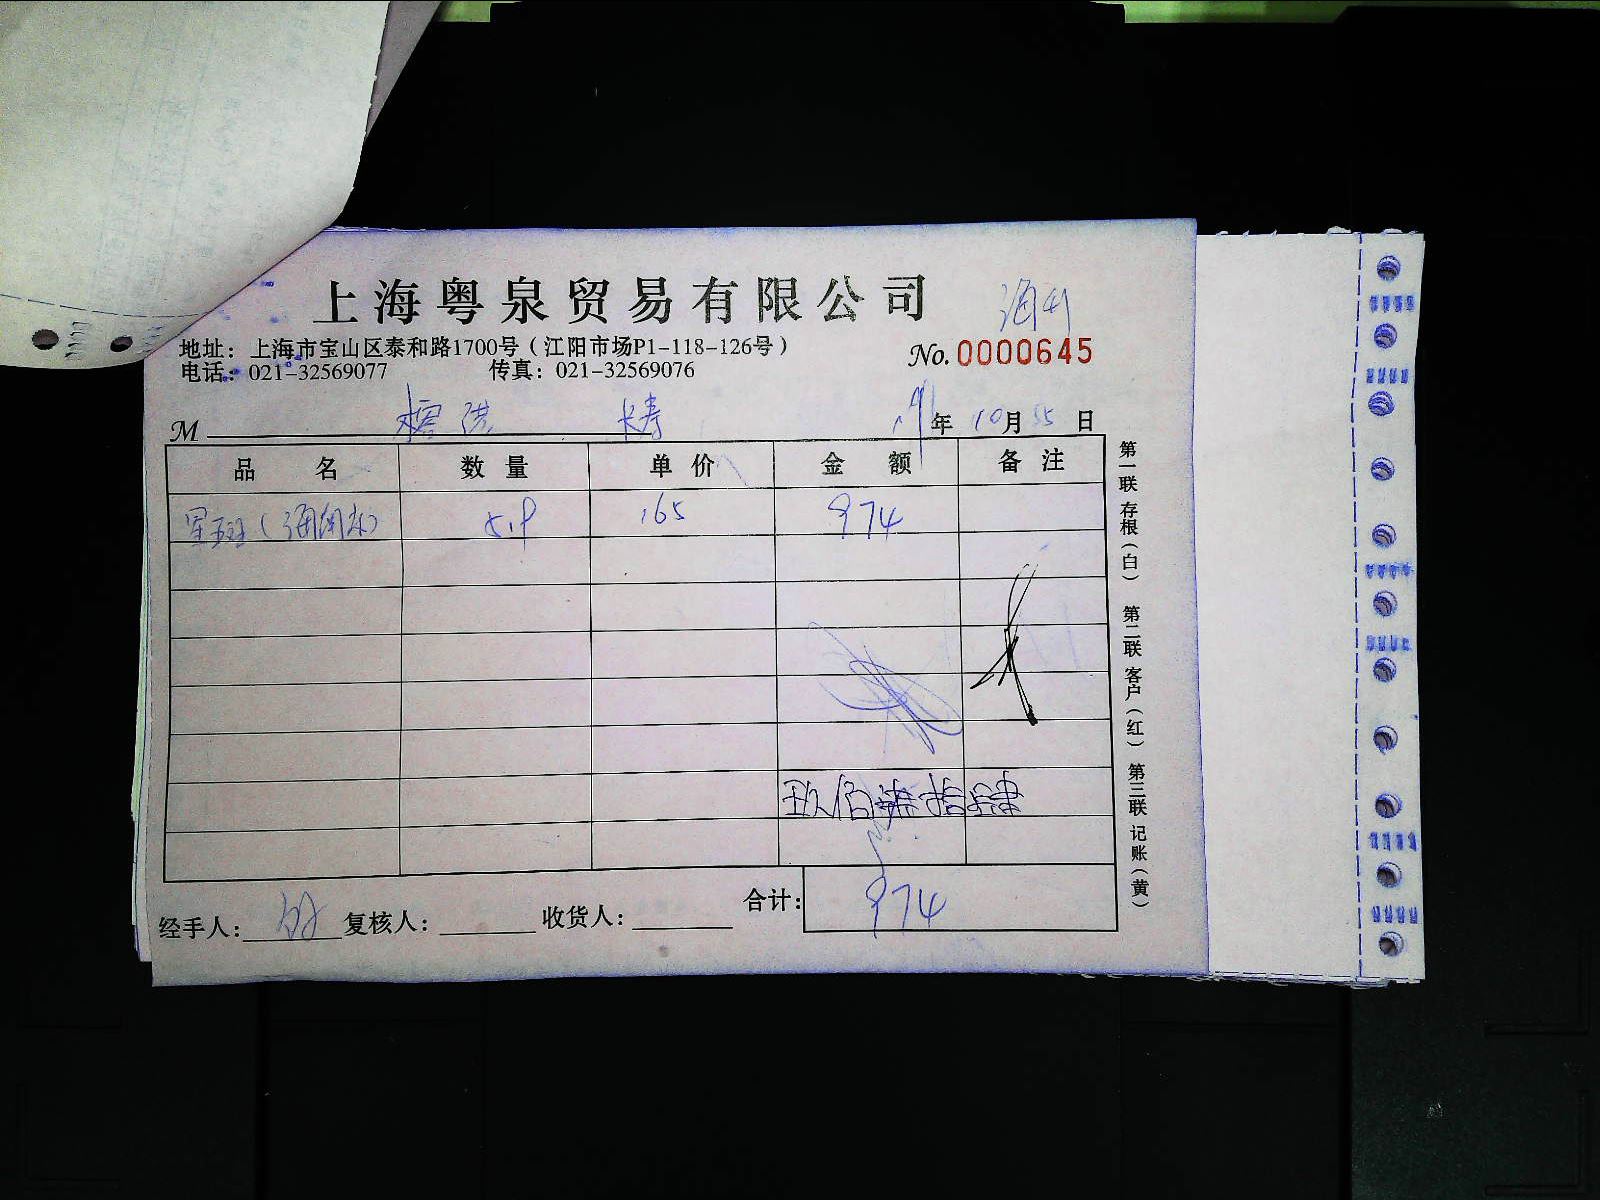 上海粤泉贸易有限公司
地址：上海市宝山区泰和路1700号（江阳市场P1-118-126号）
No. 0000645
电话：021-32569077 传真：021-32569076
M 榕港 长寿 年 10月 日
品 名 数 量 单 价 金 额 备 注
星斑 5.9 165 974
玖佰柒拾肆
合计： 974
经手人： 复核人： 收货人：
第一联 存根（白） 第二联 客户（红） 第三联 记账（黄）